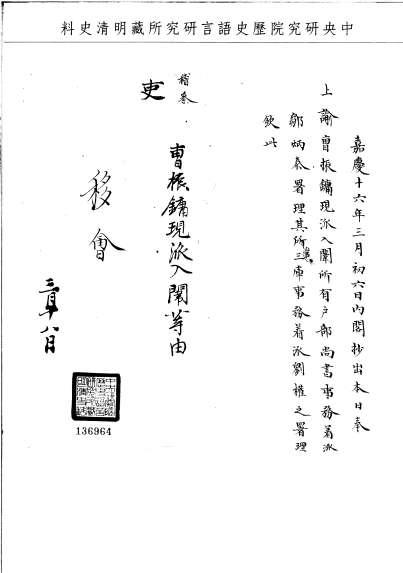 中央研究院歷史語言研究所藏明清史料
嘉慶十六年三月初六日內閣抄出本日奉
上諭曹振鏞現派入闈所有戶部尚書事務着派
鄒炳泰署理其所管三庫事務着派劉權之署理
欽此
稽察
曹振鏞現派入闈等由
吏
移會
三月 八日
136964